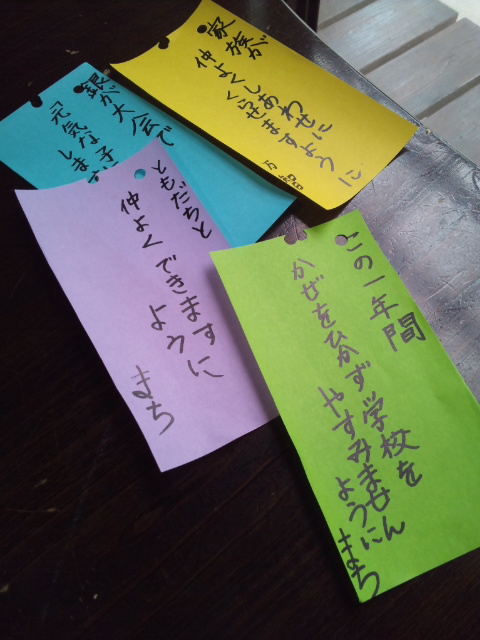 家族が
仲よくしあわせに
くらせますように
万智
銀が大会で
元気な子
しま
ともだちと
仲よくできますに
よう
まち
この一年間
かぜをひかず学校を
やすみません
ように
まち